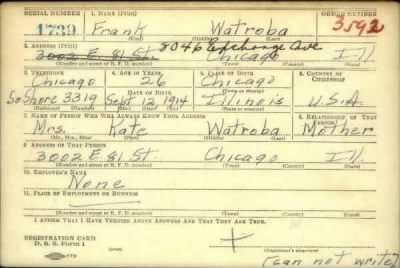 SERIAL NUMBER 1. NAME (Print) ORDER NUMBER
1739 Frank Watroba 3592
(First) (Middle) (Last)
2. ADDRESS (Print) 8046 Exchange Ave
3002 E 81 St. Chicago Ill
(Number and street or R. F. D. number) (Town) (County) (State)
3. TELEPHONE 4. AGE IN YEARS 5. PLACE OF BIRTH 6. COUNTRY OF CITIZENSHIP
Chicago 26 Chicago
DATE OF BIRTH (Town or county)
So Shore 3319 Sept 12, 1914 Illinois U.S.A.
(Exchange) (Number) (Mo.) (Day) (Yr.) (State or country)
7. NAME OF PERSON WHO WILL ALWAYS KNOW YOUR ADDRESS 8. RELATIONSHIP OF THAT PERSON
Mrs. Kate Watroba Mother
(Mr., Mrs., Miss) (First) (Middle) (Last)
9. ADDRESS OF THAT PERSON
3002 E 81 St Chicago Ill.
(Number and street or R. F. D. number) (Town) (County) (State)
10. EMPLOYER'S NAME
None
11. PLACE OF EMPLOYMENT OR BUSINESS
(Number and street or R. F. D. number) (Town) (County) (State)
I AFFIRM THAT I HAVE VERIFIED ABOVE ANSWERS AND THAT THEY ARE TRUE.
REGISTRATION CARD
D. S. S. Form 1 +
(can not write)